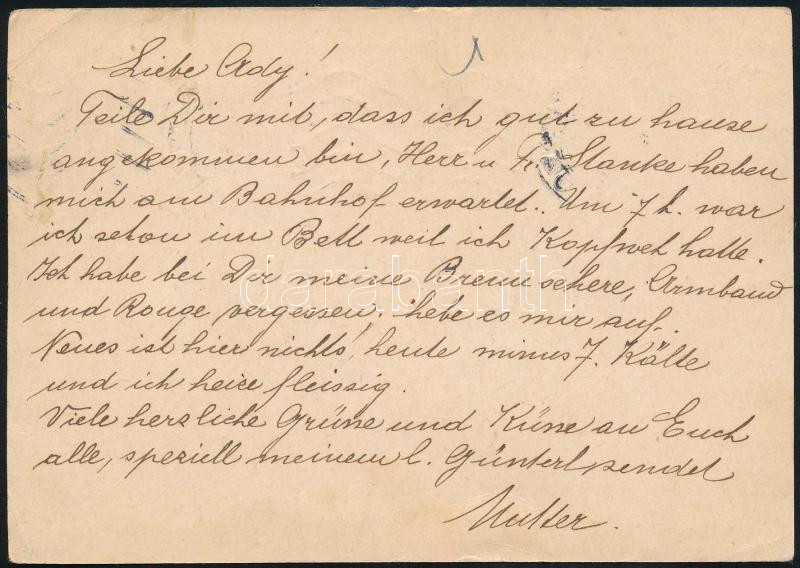 Liebe Ady!
Teile Dir mit, dass ich gut zu hause
angekommen bin, Herr u Fr. Stanke haben
mich am Bahnhof erwartet. Um 7 h. war
ich schon im Bett weil ich Kopfweh hatte.
Ich habe bei Dir meine Brennschere, Armband
und Rouge vergessen, hebe es mir auf.
Neues ist hier nichts, heute minus 7. Kälte
und ich heize fleissig.
Viele herzliche Grüne und Küne an Euch
alle, speziell meinem l. Günterl sendet
Mutter.
darabanth